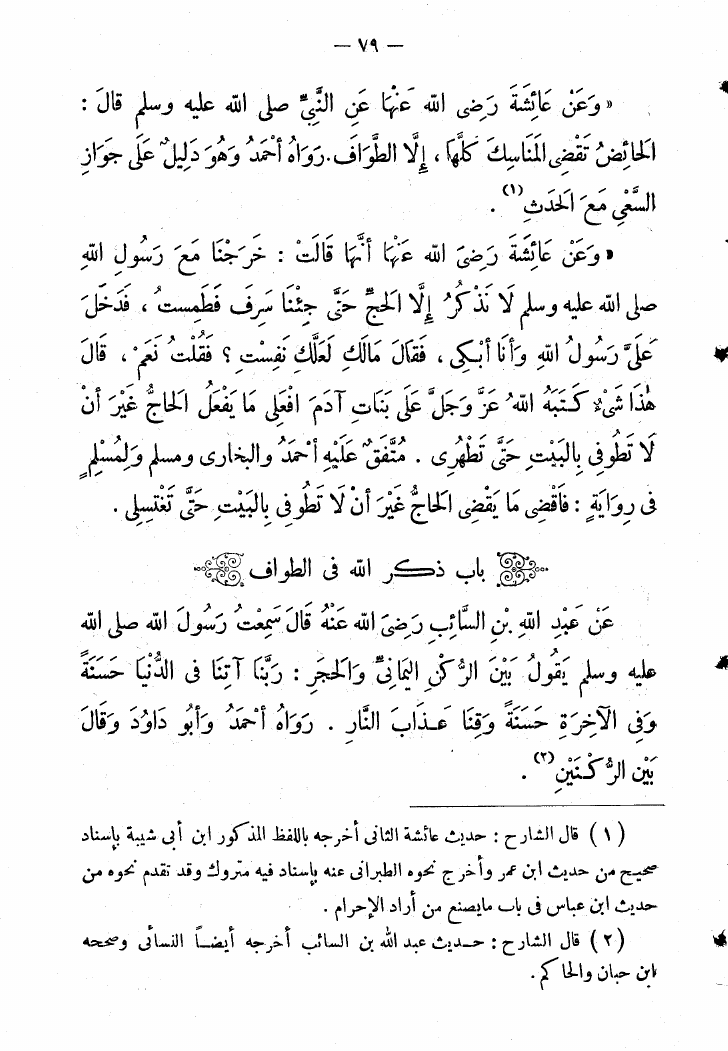 — ٧٩ —
« وَعَنْ عَائِشَةَ رَضِىَ اللهُ عَنْهَا عَنِ النَّبِيِّ صلى الله عليه وسلم قَالَ :
الحَائِضُ تَقْضِى المَنَاسِكَ كُلَّهَا ، إِلَّا الطَّوَافَ . رَوَاهُ أَحْمَدُ وَهُوَ دَلِيلٌ عَلَى جَوَازِ
السَّعْىِ مَعَ الحَدَثِ (١) .
« وَعَنْ عَائِشَةَ رَضِىَ اللهُ عَنْهَا أَنَّهَا قَالَتْ : خَرَجْنَا مَعَ رَسُولِ اللهِ
صلى الله عليه وسلم لَا نَذْكُرُ إِلَّا الحَجَّ حَتَّى جِئْنَا سَرِفَ فَطَمِسْتُ ، فَدَخَلَ
عَلَىَّ رَسُولُ اللهِ وَأَنَا أَبْكِى ، فَقَالَ مَالَكِ لَعَلَّكِ نَفِسْتِ ؟ فَقُلْتُ نَعَمْ ، قَالَ
هٰذَا شَىْءٌ كَتَبَهُ اللهُ عَزَّ وَجَلَّ عَلَى بَنَاتِ آدَمَ افْعَلِى مَا يَفْعَلُ الحَاجُّ غَيْرَ أَنْ
لَا تَطُوفِى بِالبَيْتِ حَتَّى تَطْهُرِى . مُتَّفَقٌ عَلَيْهِ أَحْمَدُ والبخارى ومسلم وَلِمُسْلِمٍ
فى رِوَايَةٍ : فَاقْضِى مَا يَقْضِى الحَاجُّ غَيْرَ أَنْ لَا تَطُوفِى بِالبَيْتِ حَتَّى تَغْتَسِلِى .
باب ذكر الله فى الطواف
عَنْ عَبْدِ اللهِ بْنِ السَّائِبِ رَضِىَ الله عَنْهُ قَالَ سَمِعْتُ رَسُولَ الله صلى الله
عليه وسلم يَقُولُ بَيْنَ الرُّكْنِ اليَمَانِىِّ وَالحَجَرِ : رَبَّنَا آتِنَا فى الدُّنْيَا حَسَنَةً
وَفِى الآخِرَةِ حَسَنَةً وَقِنَا عَذَابَ النَّارِ . رَوَاهُ أَحْمَدُ وَأَبُو دَاوُدَ وَقَالَ
بَيْنَ الرُّكْنَيْنِ (٢) .
( ١ ) قال الشارح : حديث عائشة الثانى أخرجه باللفظ المذكور ابن أبى شيبة بإسناد
صحيح من حديث ابن عمر وأخرج نحوه الطبرانى عنه بإسناد فيه متروك وقد تقدم نحوه من
حديث ابن عباس فى باب مايصنع من أراد الإحرام .
( ٢ ) قال الشارح : حديث عبد الله بن السائب أخرجه أيضاً النسائى وصححه
ابن حبان والحاكم .